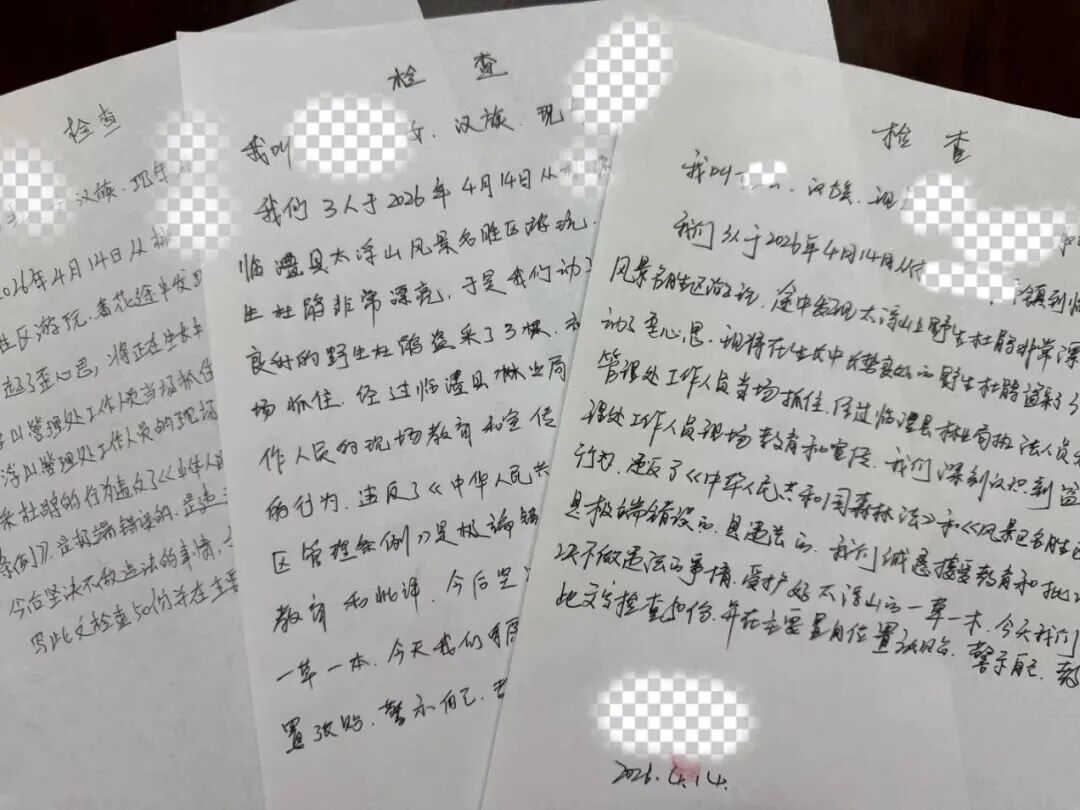 检查
汉族.现年
2026年4月14日从桃
胜区游玩.看花途中发现
起了歪心思,将正在生长
浮山管理处工作人员当场抓住
浮山管理处工作人员的现场
采杜鹃的行为违反了《中华人民
条例》.是极端错误的.是违法
今后坚决不做违法的事情,
写此文检查50份并在主要
检查
我叫 女,汉族.现
我们3人于2026年4月14日从
临澧县太浮山风景名胜区游玩.
生杜鹃非常漂亮,于是我们动了
良好的野生杜鹃盗采了3棵.
场抓住.经过临澧县林业局
作人员的现场教育和宣传
的行为.违反了《中华人民共
区管理条例》是极端错
教育和批评.今后坚
一草一木.今天我们
置张贴.警示自己.
检查
我叫 汉族.现
我们3人于2026年4月14日从 镇到临
风景名胜区游玩.途中发现太浮山上野生杜鹃非常漂
动了歪心思.现将在生长中长势良好的野生杜鹃盗采了3
管理处工作人员当场抓住.经过临澧县林业局执法人员
理处工作人员现场教育和宣传.我们深刻认识到盗
行为.违反了《中华人民共和国森林法》和《风景名胜区
是极端错误的.是违法的.我们诚恳接受教育和批评
决不做违法的事情.爱护好太浮山的一草一木.今天我们
此文字检查50份.并在主要景点位置张贴.警示自己.教
2026.4.14.